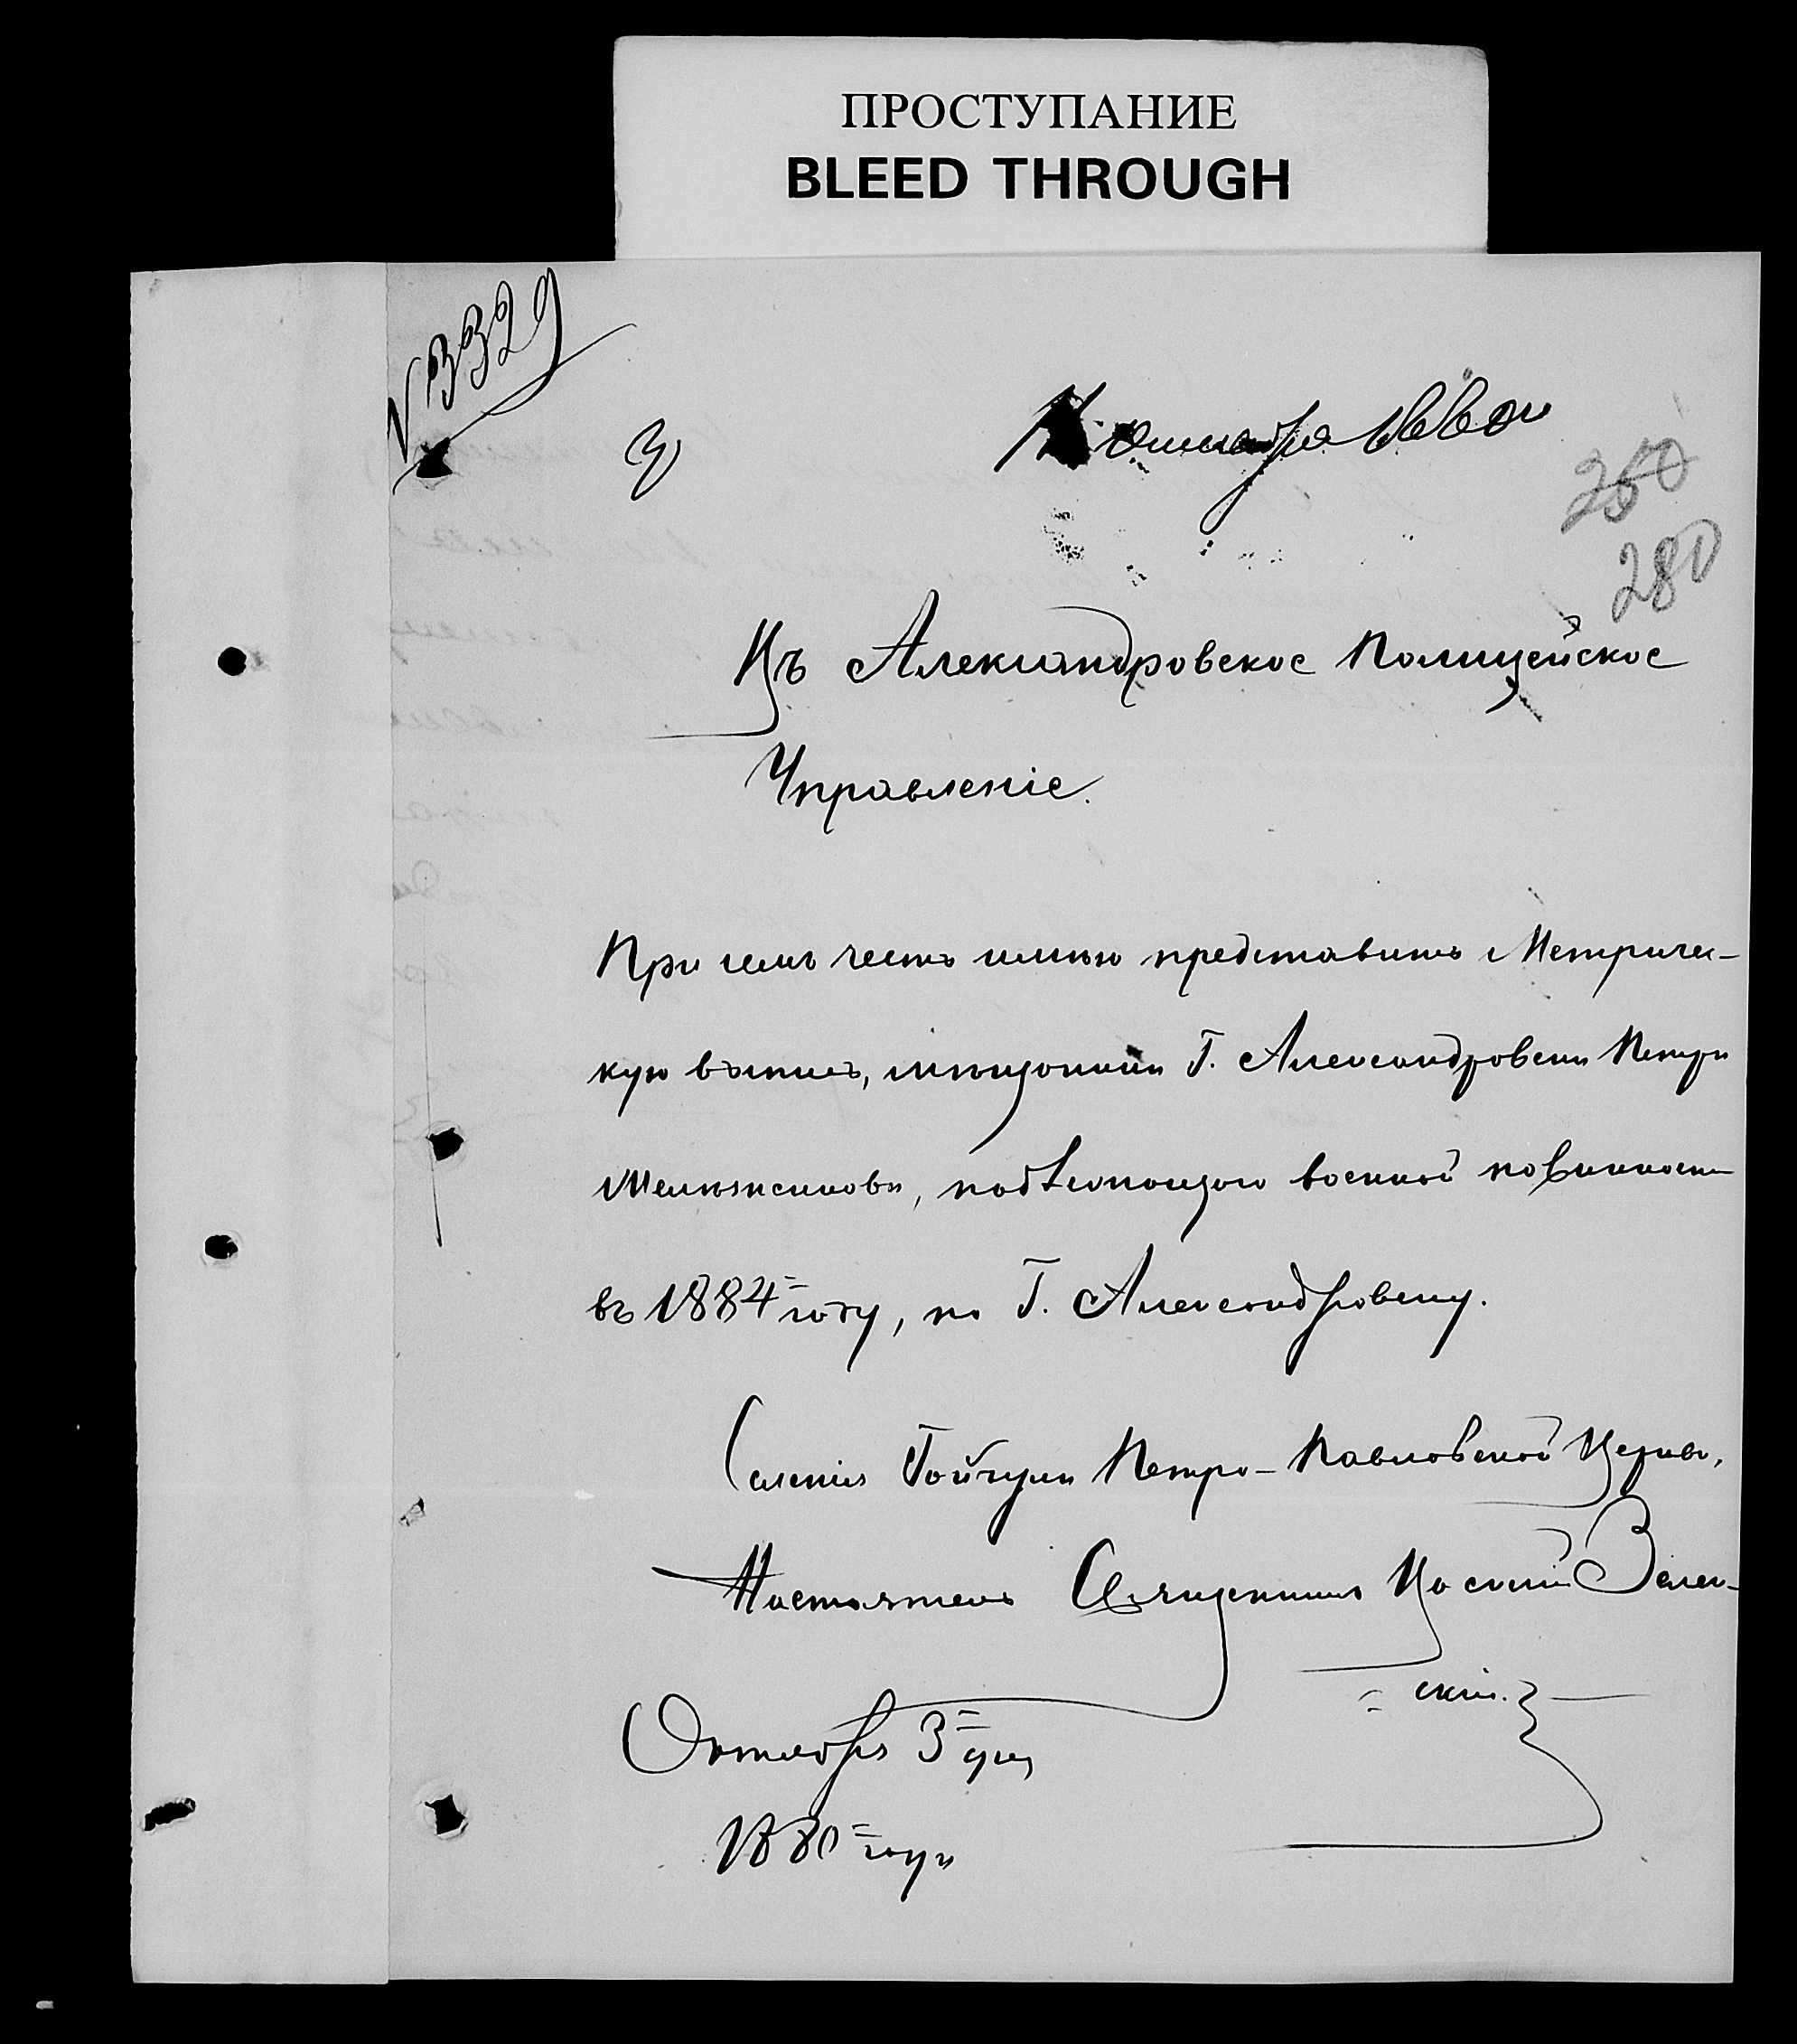 ПРОСТУПАНИЕ
BLEED THROUGH
№ 3329
3
250
280
Въ Александровское Полицейское
Управленіе.
При семъ честь имѣю представить Метричес-
кую выпись, мѣщанина Г. Александровска Петра
подлежащаго военной повинности
въ 1884 году, по Г. Александровску.
Селенія Гойчула Петро-Павловской Церкви,
Настоятель Священникъ Іосифъ Залес-
скій.
Октября 3 дня
1880 года